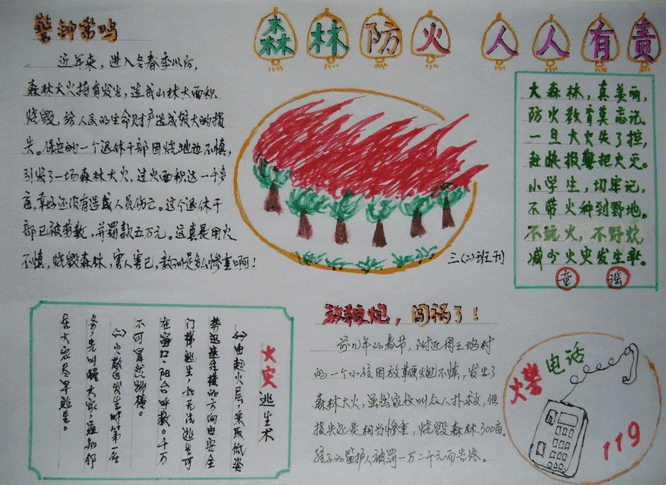 森林防火 人人有责
警钟常鸣
近年来，进入冬春季以后，
森林大火时有发生，造成山林大面积
烧毁，给人民的生命财产造成很大的损
失。保定的一个退休干部因烧地边不慎，
引发了一场森林大火，过火面积达一千多
亩，幸好还没有造成人员伤亡。这个退休干
部已被拘教，并罚款五万元。这真是用火
不慎，烧毁森林，害人害己，教训是多么惨重啊！
三（2）班王刊
大森林，真美丽，
防火教育莫忘记，
一旦大火失了控，
赶快报警把火灭。
小学生，切牢记，
不带火种到野地。
不玩火，不野炊
减少火灾发生率。
童谣
火灾逃生术
由起火层采取低姿
势迅速往楼的方向由安全
门等逃生，如无法逃生可
在窗口，阳台呼救。千万
不可冒然跳楼。
火灾发生时第一
务，先叫醒大家，通知邻
居火灾尽早逃生。
放鞭炮，闯祸了！
前几年的春节，附近
的一个小孩因放鞭炮不慎，发生了
森林大火，虽然家长叫众人扑救，但
损失还是相当惨重，烧毁森林300亩，
孩子的监护人被罚一万二千元而告终。
火警电话
119